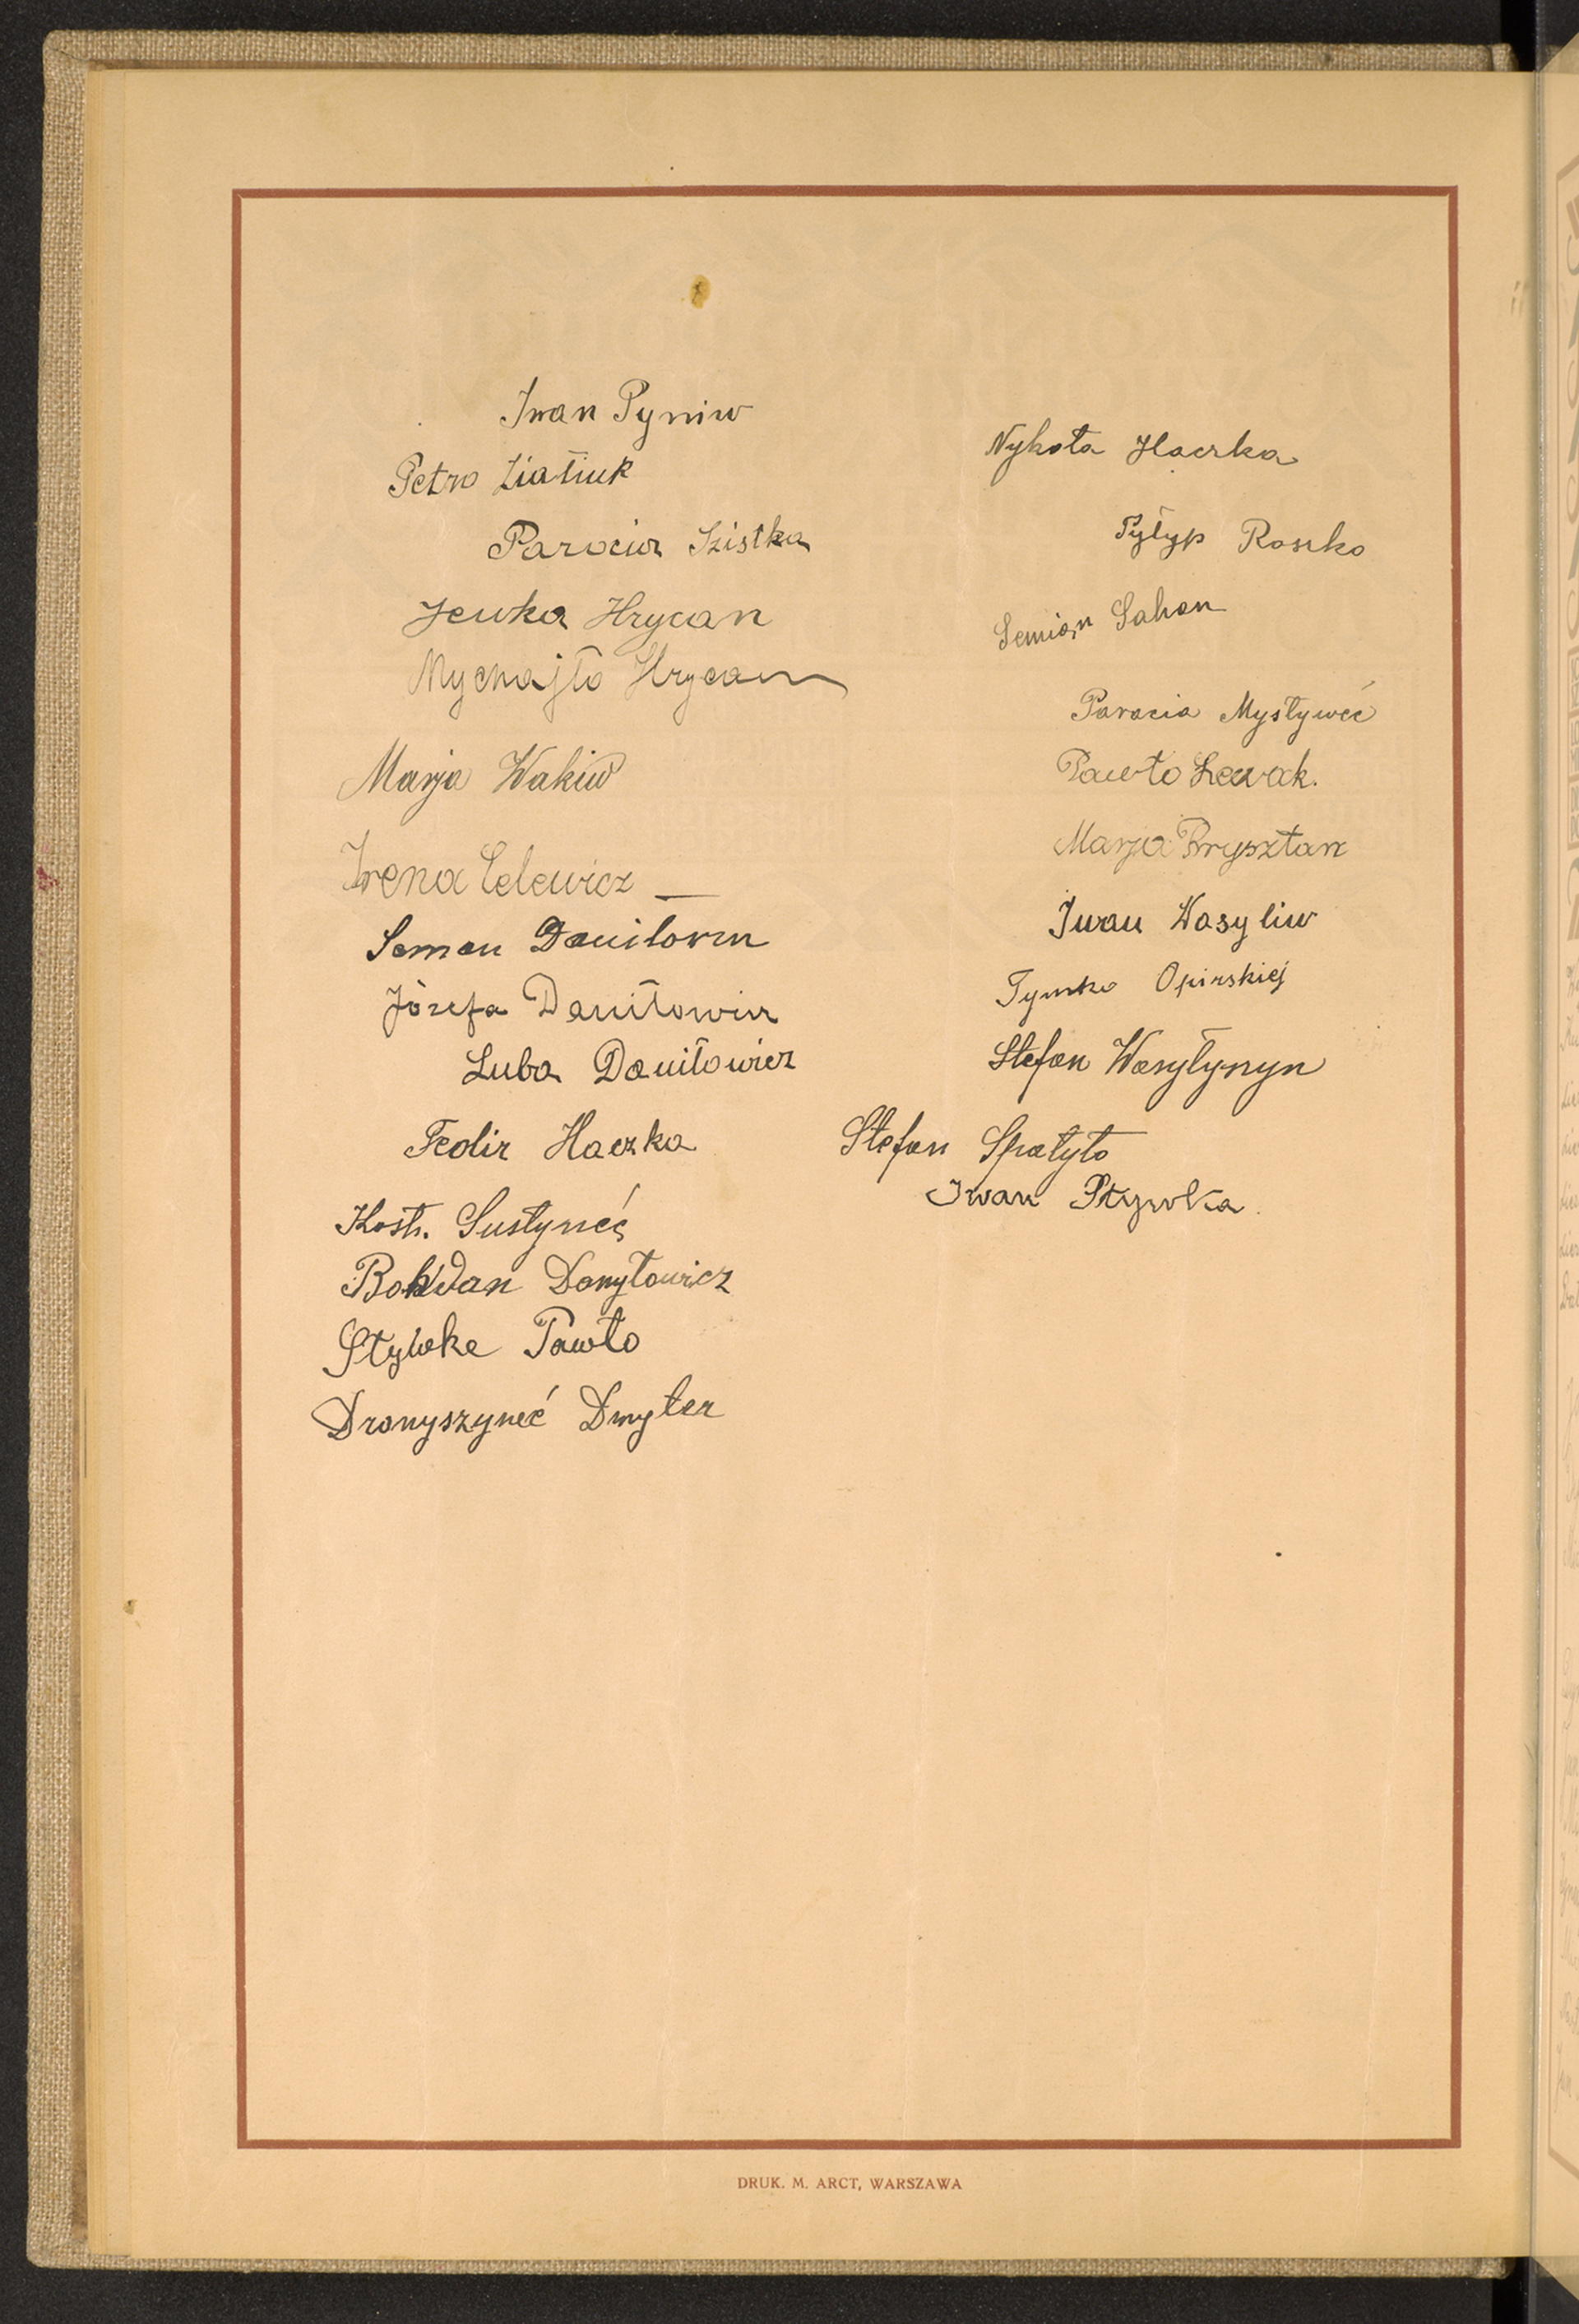 Iwan Pyniw
Petro Ziatiuk
Paracia Szistka
Jewka Hrycan
Mychajło Hrycan
Marja Wakiw
Irena Lelewicz
Semen Daniłowicz
Józefa Daniłowicz
Luba Daniłowicz
Fedir Haczka
Kost. Sustyneć
Bohdan Danyłowicz
Styweke Pawło
Dronyszyneć Dmyter
Nykoła Haczka
Pyłyp Roszko
Semion Sahan
Paracia Mysływeć
Pawło Lewak.
Marja Prysztan
Iwan Wasyliw
Tymko Opirskiej
Stefan Wasyłynyn
Stefan Spatyło
Iwan Stywka
DRUK. M. ARCT, WARSZAWA